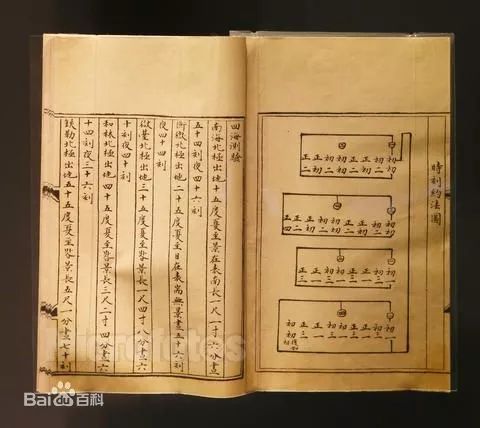 時刻約法圖
四海測驗
南海北極出地一十五度夏至景在表南長一尺一寸六分晝
五十四刻夜四十六刻
衡嶽北極出地二十五度夏至日在表端無景晝五十六刻
夜四十四刻
嶽臺北極出地三十五度夏至晷景長一尺四寸八分晝六
十刻夜四十刻
和林北極出地四十五度夏至晷景長三尺二寸四分晝六
十四刻夜三十六刻
鐵勒北極出地五十五度夏至晷景長五尺一分晝七十刻
Baidu百科